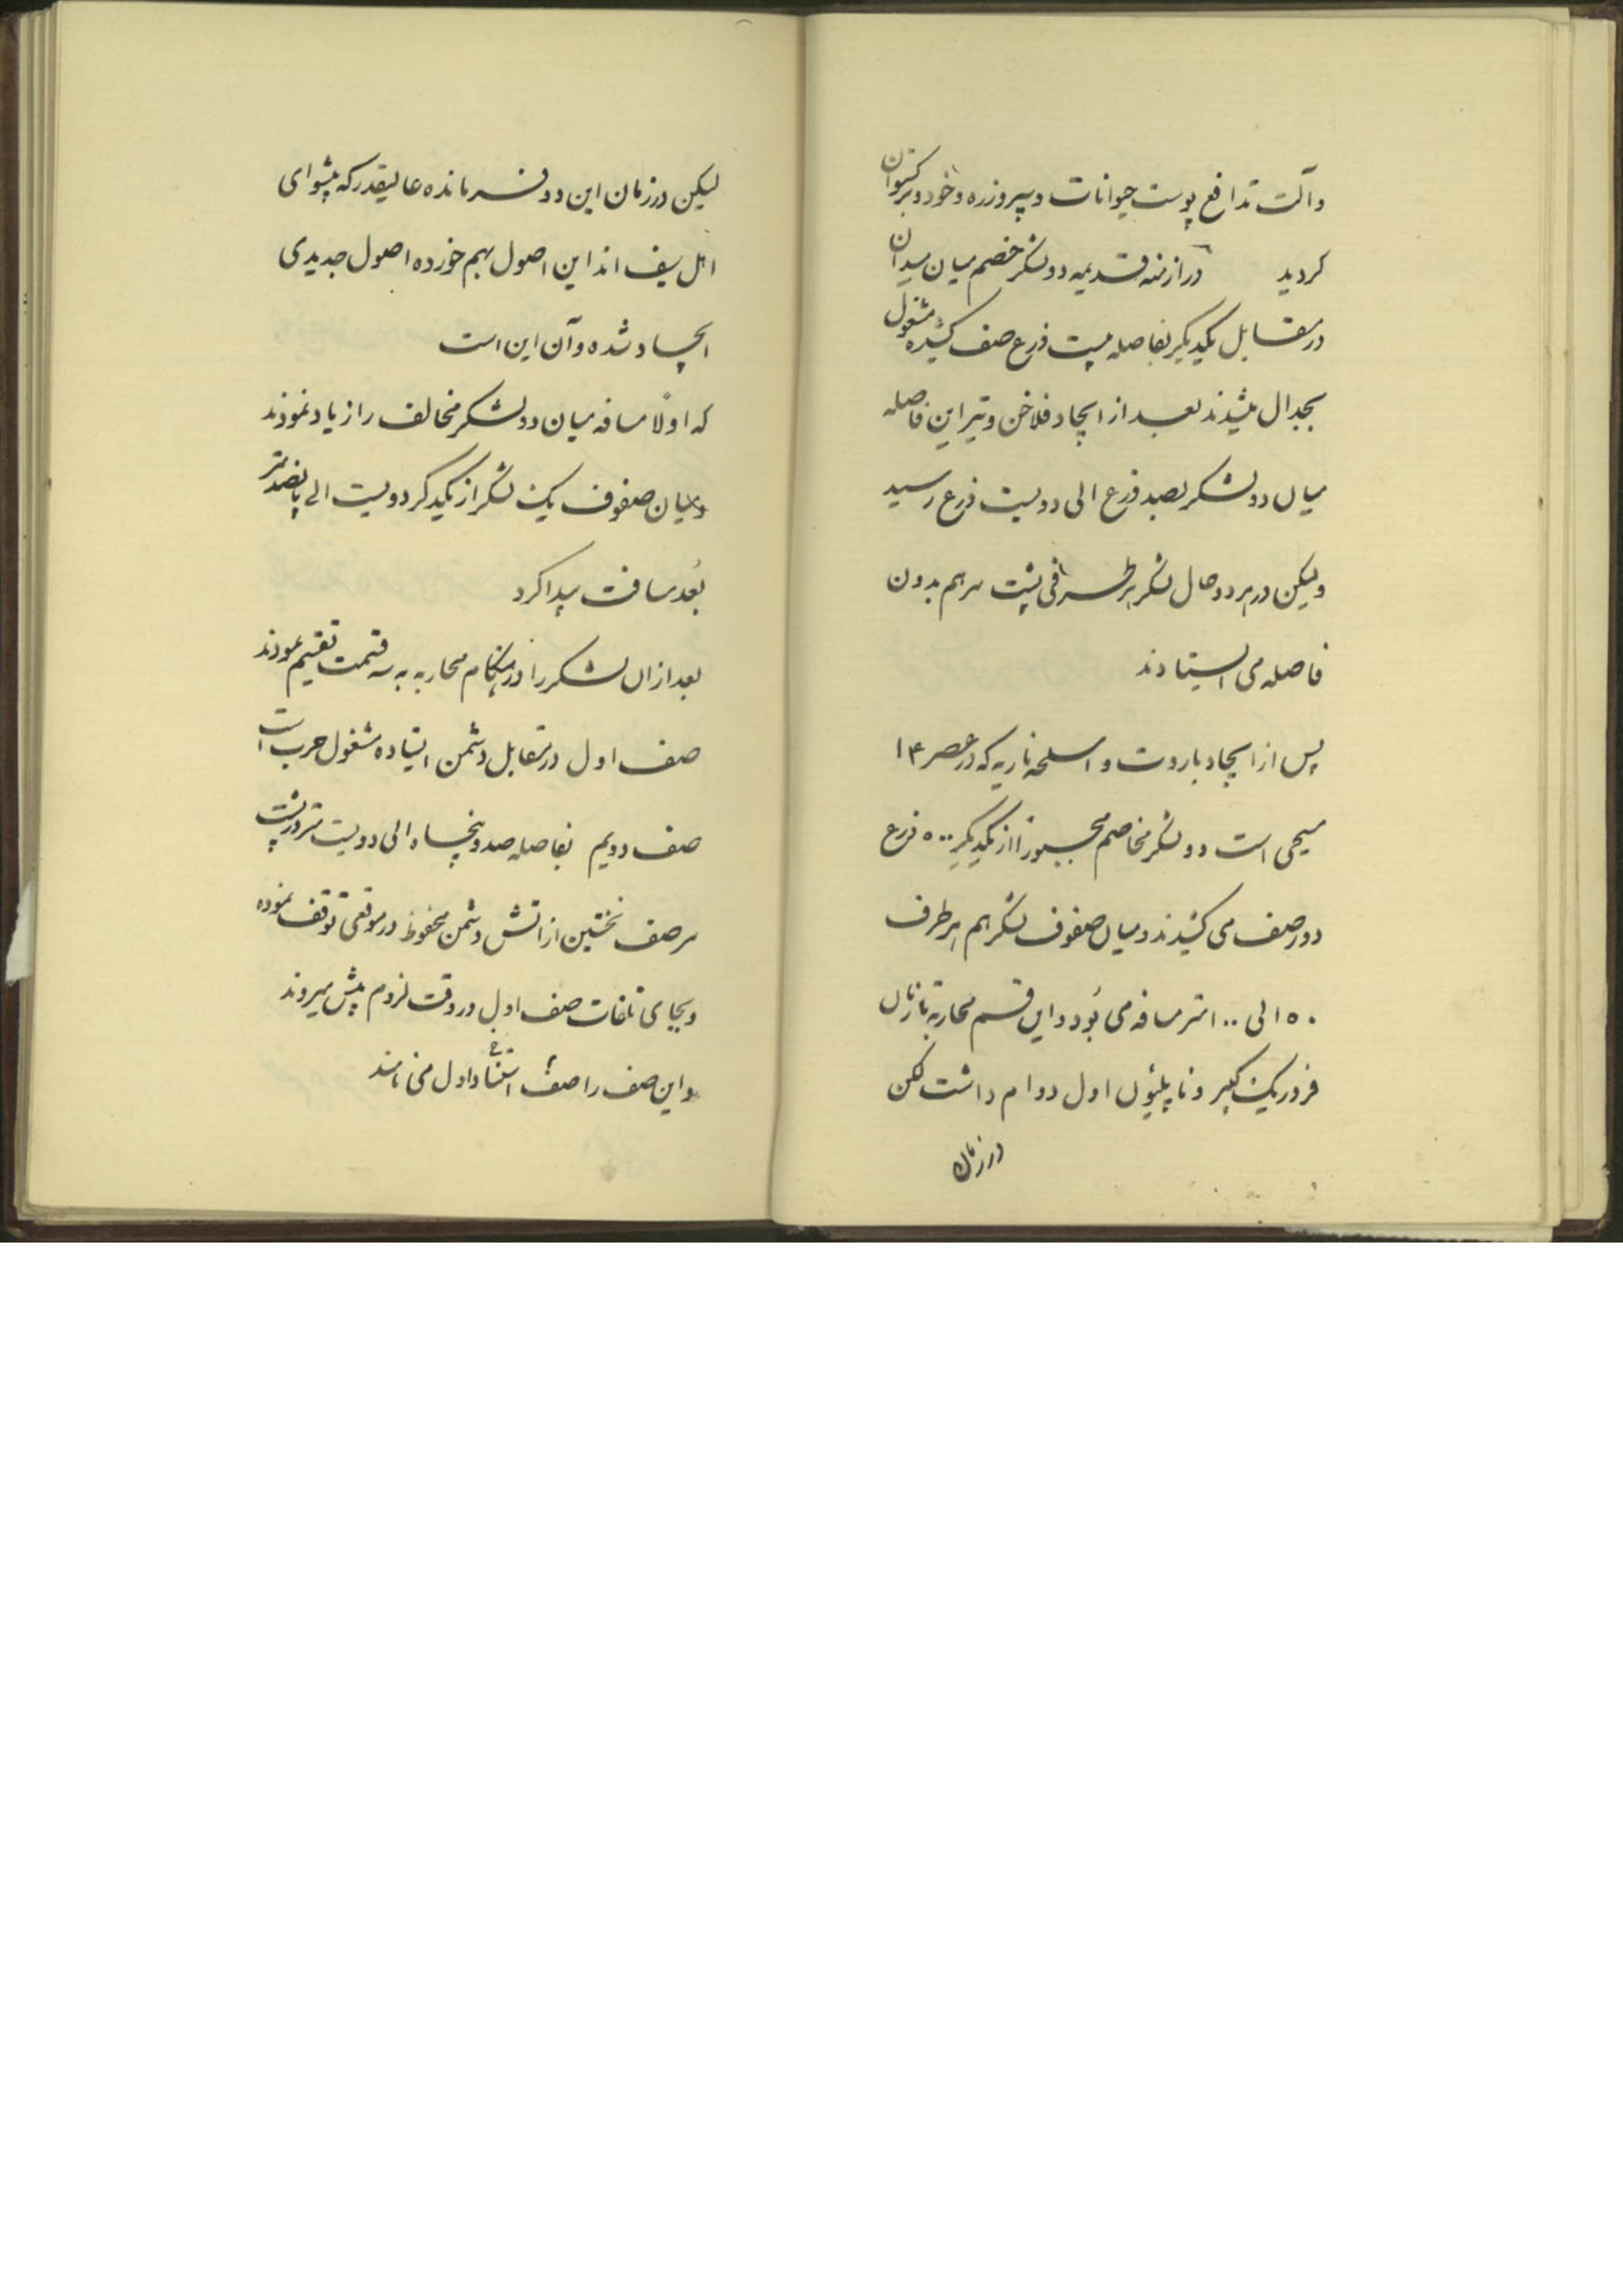 وآلت تدافع پوست حیوانات وسپر وزره وخود وبرکستوان
کردید در ازمنه قدیمه دو لشکر خصم میان میدان
در مقابل یکدیکر بفاصله بیست ذرع صف کشیده مشغول
بجدال میشدند بعد از ایجاد فلاخن وتیر این فاصله
میان دو لشکر بصد ذرع الی دویست ذرع رسید
ولیکن در هر دو حال لشکر هر طرفی پشت سر هم بدون
فاصله می ایستادند
پس از ایجاد باروت و اسلحه ناریه که در عصر ۱۴
مسیحی است دو لشکر مخاصم مجبوراً از یکدیکر ۵۰۰ ذرع
دور صف می کشیدند ومیان صفوف لشکر هم هر طرف
۵۰ الی ۱۰۰ متر مسافه می بُود واین قسم محاربه تا زمان
فردریک کبیر و ناپلیون اول دوام داشت لکن
در زمان
لیکن در زمان این دو فرمانده عالیقدر که پیشوای
اهل سیف اند این اصول بهم خورده اصول جدیدی
ایجاد شده وآن این است
که اولاً مسافه میان دو لشکر مخالف را زیاد نمودند
ومیان صفوف یک لشکر از یکدکر دویست الی پانصد متر
بُعد مسافت پیدا کرد
بعد از ان لشکر را در هنکام محاربه به سه قسمت تقسیم نمودند
صف اول در مقابل دشمن ایستاده مشغول حرب است
صف دویم بفاصله صد وپنجاه الی دویست متر در پشت
سر صف نخستین از اتش دشمن محفوظ در موقعی توقف نموده
وبجای تلفات صف اول در وقت لزوم پیش میروند
واین صف را صف استناد اول می نامند